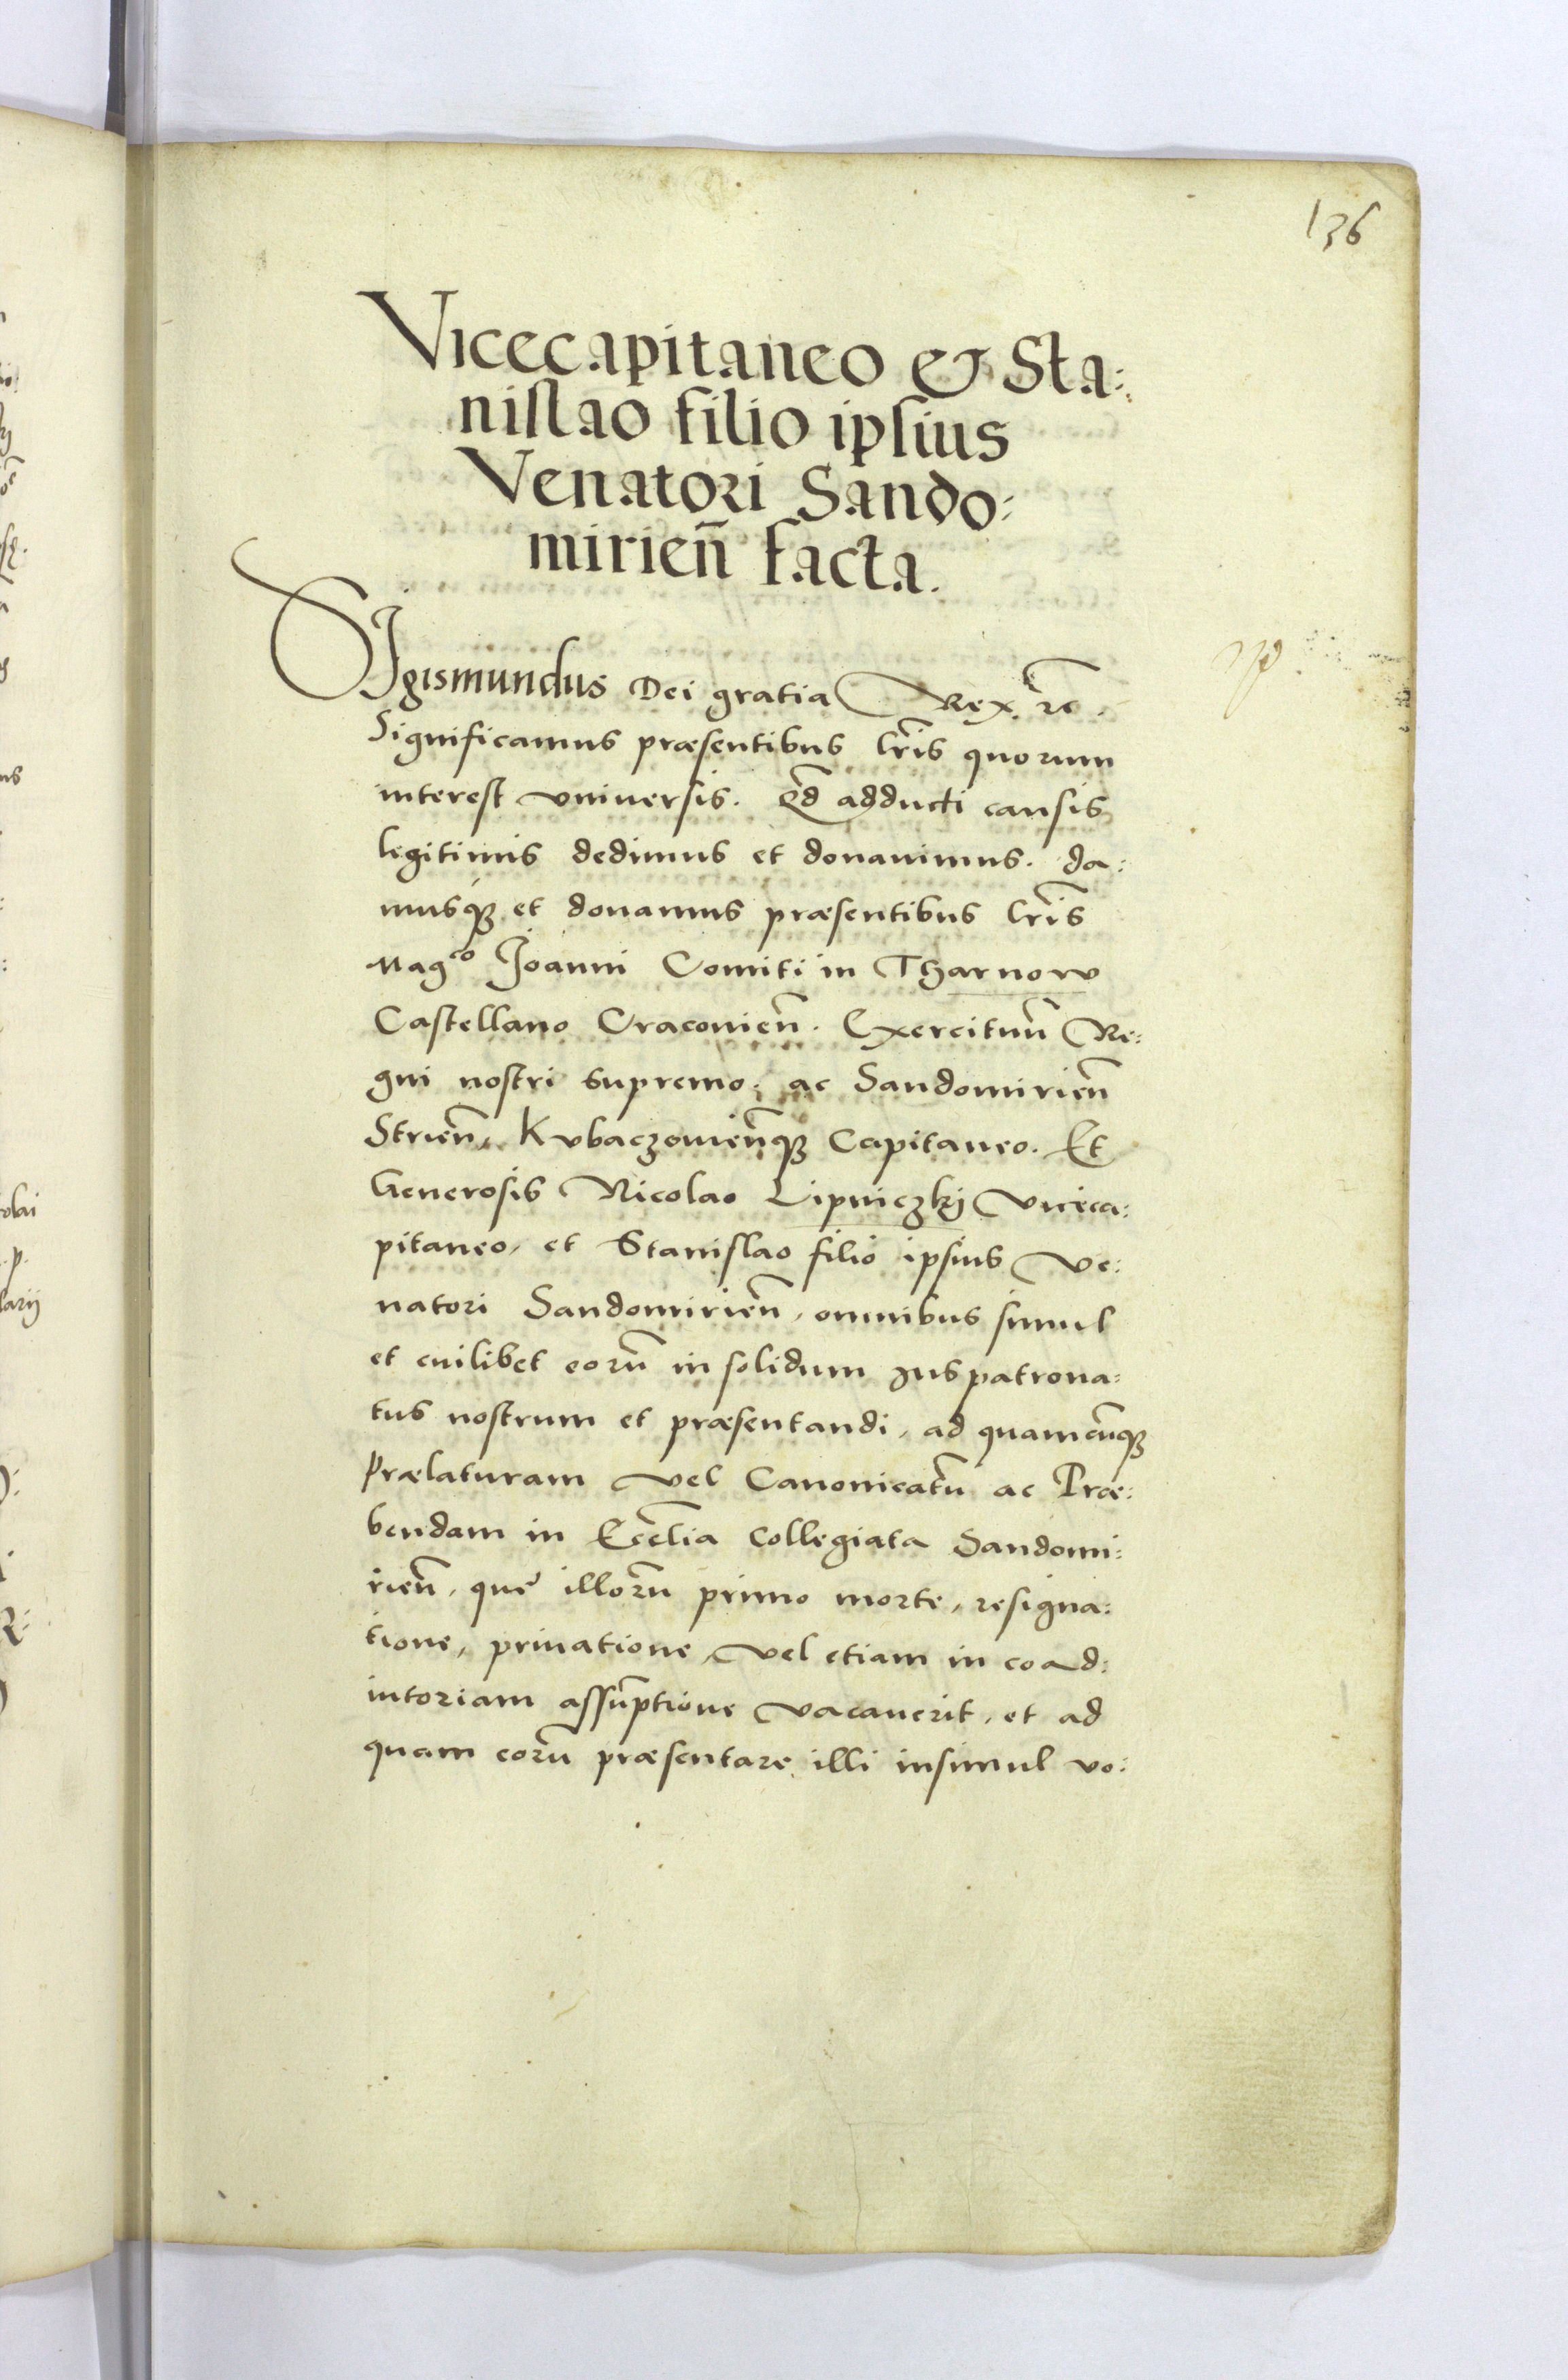 136
Vicecapitaneo & Sta:
nislao filio ipsius
Venatori Sando:
mirieñ facta.
Sigismundus Dei gratia Rex ꝛc.
Significamus præsentibus lr̃is quorum
interest vniuersis. Qd̃ adducti causis
legitimis dedimus et donauimus. da:
musqꝫ et donamus præsentibus lr̃is
Magco Joanni Comiti in Tharnow
Castellano Cracovieñ. Exercituũ Re:
gni nostri supremo. ac Sandomirieñ
Strieñ, Kvbaczovieñqꝫ Capitaneo. Et
Generosis Nicolao Lipniczkj Viceca:
pitaneo, et Stanislao filio ipsius Ve:
natori Sandomirieñ, omnibus simul
et cuilibet eorũ in solidum Jus patrona:
tus nostrum et præsentandi, ad quamcũqꝫ
prælaturam vel Canonicatũ ac Præ:
bendam in Eccl̃ia Collegiata Sandomi:
rieñ, que illorũ primo morte, resigna:
tione, priuatione, vel etiam in coad:
iutoriam assũptione vacauerit, et ad
quam eorũ præsentare illi insimul vo: